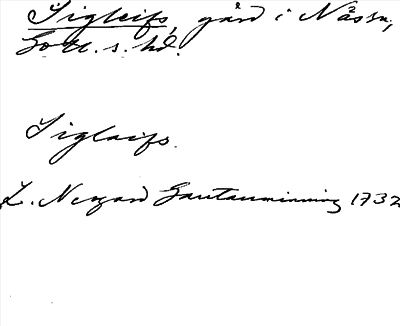 Sigleifs, gård i Näs sn,
Gotl. s. hd.
Siglaifs.
L. Neogard Gautauminning 1732